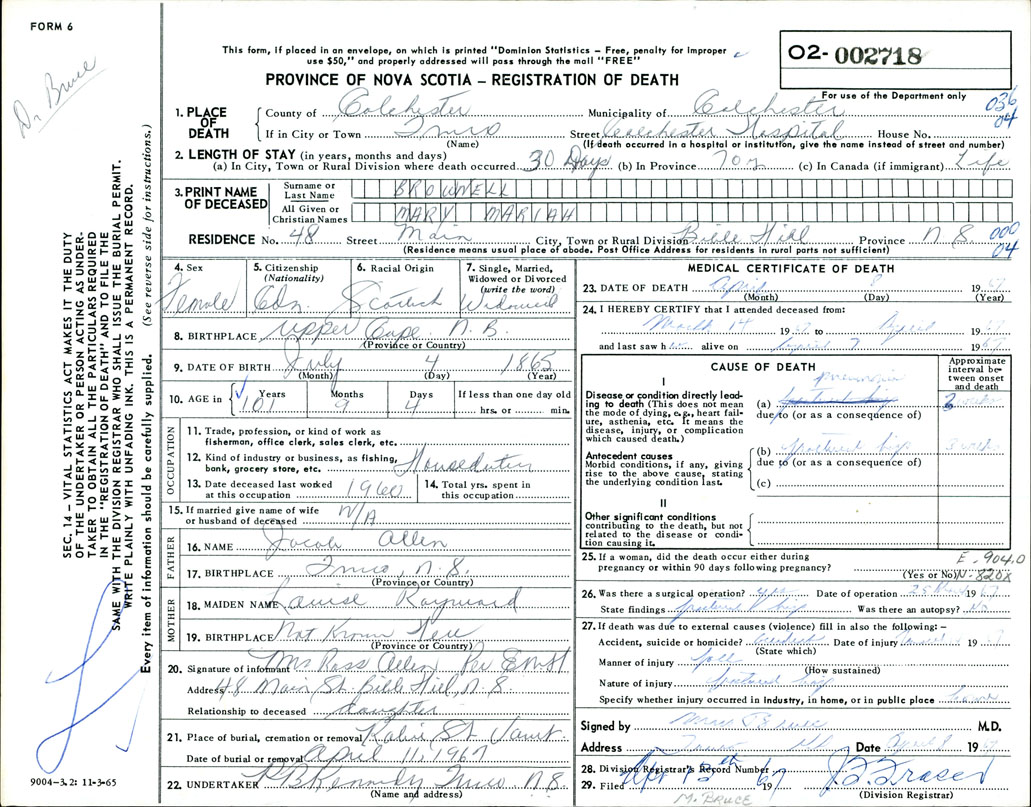 FORM 6
Dr Bruce
This form, if placed in an envelope, on which is printed "Dominion Statistics – Free, penalty for improper
use $50," and properly addressed will pass through the mail "FREE"
PROVINCE OF NOVA SCOTIA – REGISTRATION OF DEATH
02- 002718
For use of the Department only
036
04
1. PLACE OF DEATH
County of Colchester Municipality of Colchester
If in City or Town Truro Street Colchester Hospital House No.
(Name) (If death occurred in a hospital or institution, give the name instead of street and number)
2. LENGTH OF STAY (in years, months and days)
(a) In City, Town or Rural Division where death occurred 30 Days (b) In Province 70 y (c) In Canada (if immigrant) Life
3. PRINT NAME OF DECEASED
Surname or Last Name BROWNELL
All Given or Christian Names MARY MARIAH
RESIDENCE No. 48 Street Main City, Town or Rural Division Bible Hill Province N.S.
(Residence means usual place of abode. Post Office Address for residents in rural parts not sufficient)
000
04
4. Sex
Female
5. Citizenship (Nationality)
Cdn.
6. Racial Origin
Scottish
7. Single, Married, Widowed or Divorced (write the word)
Widowed
8. BIRTHPLACE Upper Cape N.B.
(Province or Country)
9. DATE OF BIRTH July 4 1865
(Month) (Day) (Year)
10. AGE in Years Months Days If less than one day old
101 9 4 hrs. or min.
OCCUPATION
11. Trade, profession, or kind of work as
fisherman, office clerk, sales clerk, etc.
12. Kind of industry or business, as fishing,
bank, grocery store, etc. Houseduties
13. Date deceased last worked
at this occupation 1960
14. Total yrs. spent in
this occupation
15. If married give name of wife
or husband of deceased N/A
FATHER
16. NAME Jacob Allen
17. BIRTHPLACE Truro, N.S.
(Province or Country)
MOTHER
18. MAIDEN NAME Louise Raynard
19. BIRTHPLACE Not Known Here
(Province or Country)
20. Signature of informant Mrs Ross Allen Per
Address 48 Main St. Bible Hill, N.S.
Relationship to deceased daughter
21. Place of burial, cremation or removal
Date of burial or removal April 11, 1967
22. UNDERTAKER Kennedy Truro N.S.
(Name and address)
MEDICAL CERTIFICATE OF DEATH
23. DATE OF DEATH April 8 1967
(Month) (Day) (Year)
24. I HEREBY CERTIFY that I attended deceased from:
March 14 1967 to April 1967
and last saw h alive on April 7 1967
CAUSE OF DEATH
Approximate interval between onset and death
I
Disease or condition directly leading to death (This does not mean the mode of dying, e.g., heart failure, asthenia, etc. It means the disease, injury, or complication which caused death.)
pneumonia
(a) fractured hip 2 weeks
due to (or as a consequence of)
Antecedent causes
Morbid conditions, if any, giving rise to the above cause, stating the underlying condition last.
(b) fractured hip 3 weeks
due to (or as a consequence of)
(c)
II
Other significant conditions
contributing to the death, but not related to the disease or condition causing it.
25. If a woman, did the death occur either during
pregnancy or within 90 days following pregnancy?
(Yes or No)
E-904.0
N-820X
26. Was there a surgical operation? yes Date of operation 25 March 1967
State findings fractured hip Was there an autopsy? No
27. If death was due to external causes (violence) fill in also the following:–
Accident, suicide or homicide? accident Date of injury 1967
(State which)
Manner of injury fall
(How sustained)
Nature of injury fractured hip
Specify whether injury occurred in industry, in home, or in public place home
Signed by Bruce M.D.
Address Truro NS Date April 8 1967
28. Division Registrar's Record Number
29. Filed Apr 1967 Fraser
(Division Registrar)
M. BRUCE
SEC. 14 – VITAL STATISTICS ACT MAKES IT THE DUTY
OF THE UNDERTAKER OR PERSON ACTING AS UNDER-
TAKER TO OBTAIN ALL THE PARTICULARS REQUIRED
IN THE "REGISTRATION OF DEATH" AND TO FILE THE
SAME WITH THE DIVISION REGISTRAR WHO SHALL ISSUE THE BURIAL PERMIT.
WRITE PLAINLY WITH UNFADING INK. THIS IS A PERMANENT RECORD.
Every item of information should be carefully supplied. (See reverse side for instructions.)
9004–3.2: 11-3-65